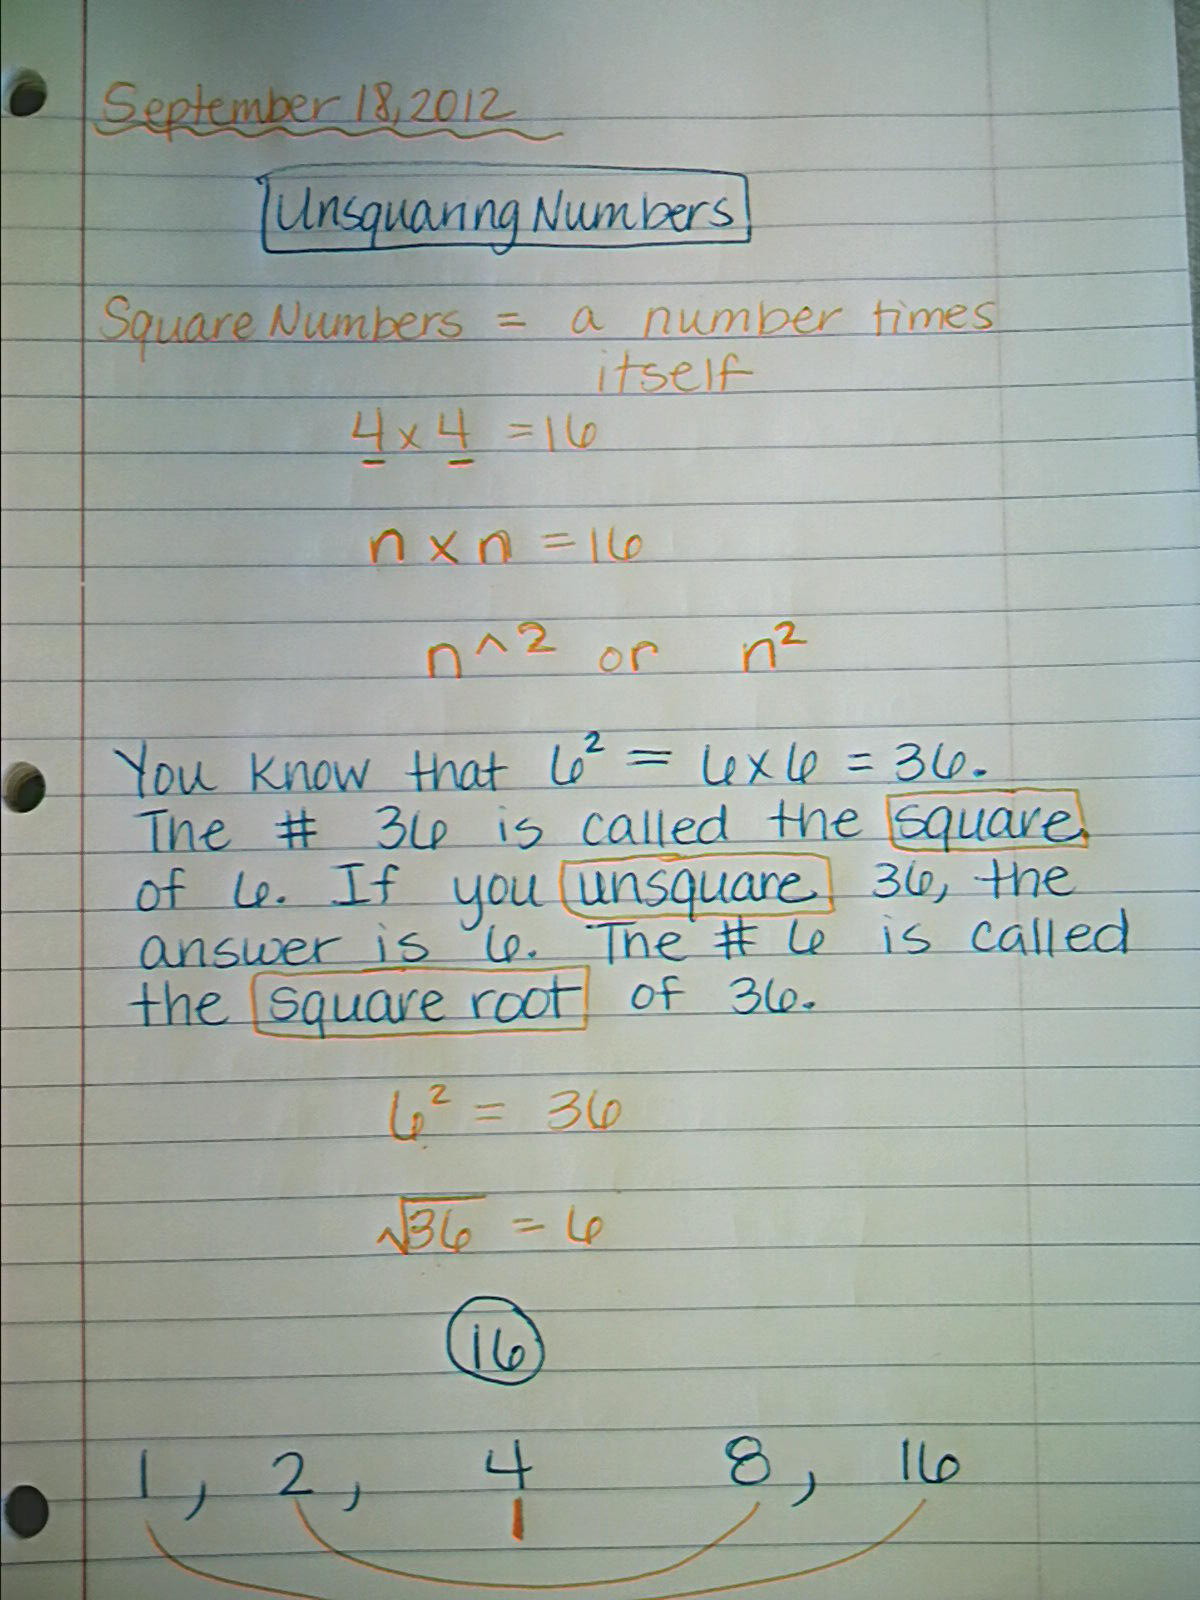 September 18, 2012
Unsquaring Numbers
Square Numbers = a number times
itself
4 x 4 = 16
n x n = 16
n ^ 2 or n²
You know that 6² = 6x6 = 36.
The # 36 is called the square
of 6. If you unsquare 36, the
answer is 6. The # 6 is called
the square root of 36.
6² = 36
√36 = 6
16
1, 2, 4 8, 16